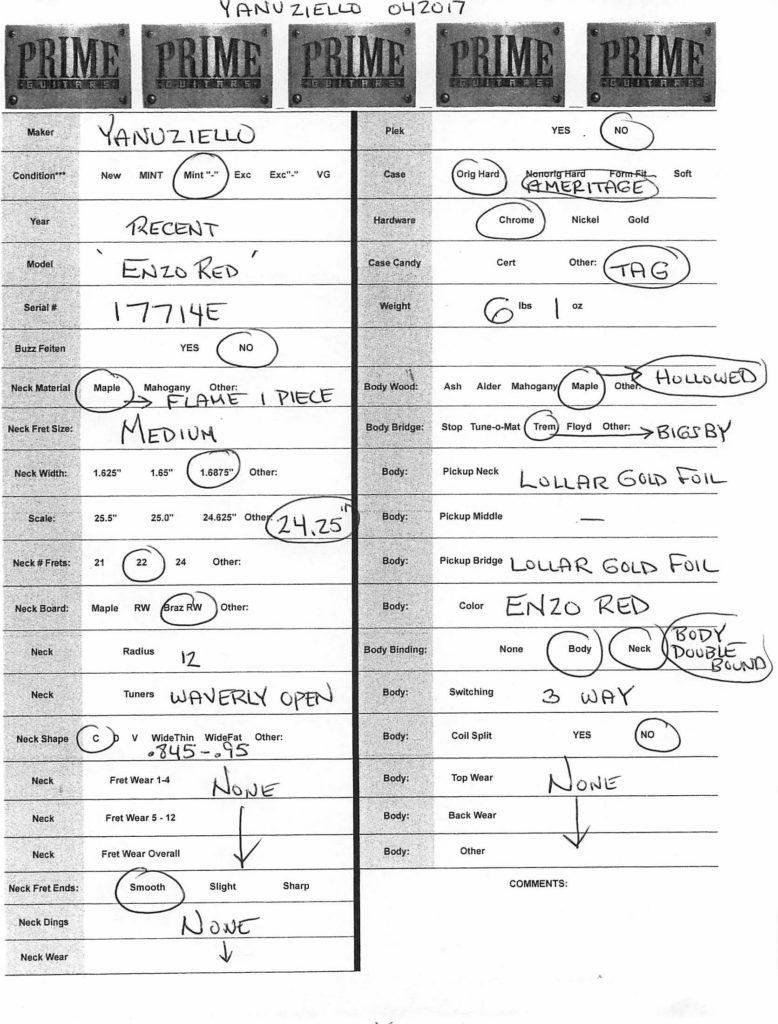 YANUZIELLO 042017
PRIME GUITARS PRIME GUITARS PRIME GUITARS PRIME GUITARS PRIME GUITARS
Maker YANUZIELLO
Condition*** New MINT Mint "-" Exc Exc"-" VG
Year RECENT
Model 'ENZO RED'
Serial # 17714E
Buzz Feiten YES NO
Neck Material Maple Mahogany Other:
→ FLAME 1 PIECE
Neck Fret Size: MEDIUM
Neck Width: 1.625" 1.65" 1.6875" Other:
Scale: 25.5" 25.0" 24.625" Other: 24.25"
Neck # Frets: 21 22 24 Other:
Neck Board: Maple RW Braz RW Other:
Neck Radius 12
Neck Tuners WAVERLY OPEN
Neck Shape C D V WideThin WideFat Other:
.845-.95
Neck Fret Wear 1-4 NONE
Neck Fret Wear 5 - 12
Neck Fret Wear Overall
Neck Fret Ends: Smooth Slight Sharp
Neck Dings NONE
Neck Wear
Plek YES NO
Case Orig Hard Nonorig Hard Form Fit Soft
AMERITAGE
Hardware Chrome Nickel Gold
Case Candy Cert Other: TAG
Weight 6 lbs 1 oz
Body Wood: Ash Alder Mahogany Maple Other: HOLLOWED
Body Bridge: Stop Tune-o-Mat Trem Floyd Other: → BIGSBY
Body: Pickup Neck LOLLAR GOLD FOIL
Body: Pickup Middle —
Body: Pickup Bridge LOLLAR GOLD FOIL
Body: Color ENZO RED
Body Binding: None Body Neck BODY DOUBLE BOUND
Body: Switching 3 WAY
Body: Coil Split YES NO
Body: Top Wear NONE
Body: Back Wear
Body: Other
COMMENTS: